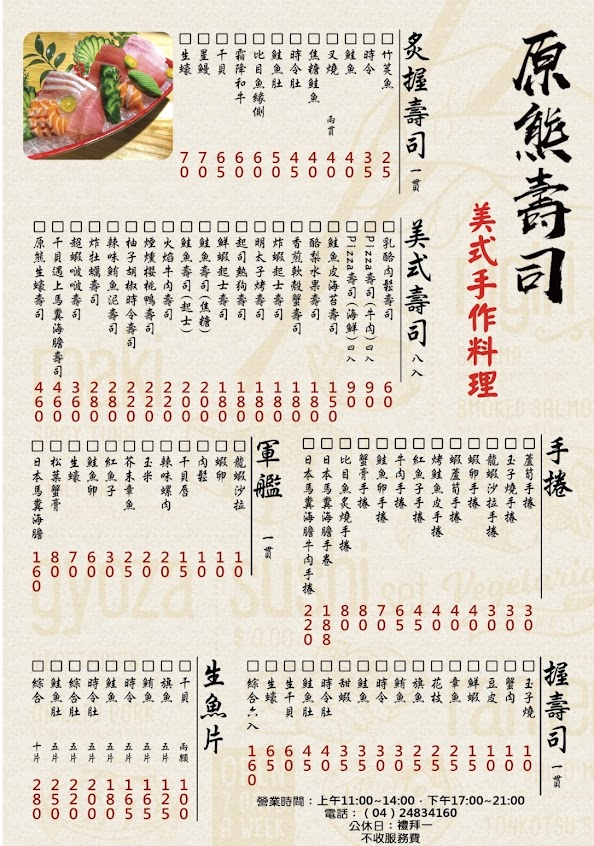 原熊壽司
美式手作料理
炙握壽司 一貫
竹筴魚 25
時令 35
鮭魚 40
叉燒 兩貫 40
焦糖鮭魚 40
時令肚 45
鮭魚肚 50
比目魚緣側 60
霜降和牛 60
干貝 65
星鰻 70
生蠔 70
美式壽司 八入
乳酪肉鬆壽司 60
Pizza壽司(牛肉)四入 90
Pizza壽司(海鮮)四入 90
鮭魚皮海苔壽司 150
酪梨水果壽司 180
香煎軟殼蟹壽司 180
炸蝦起士壽司 180
明太子烤壽司 180
起司熱狗壽司 180
鮮蝦起士壽司 180
鮭魚壽司(焦糖) 200
鮭魚壽司(起士) 200
火焰牛肉壽司 220
煙燻櫻桃鴨壽司 220
柚子胡椒時令壽司 220
辣味鮪魚泥壽司 280
炸牡蠣壽司 280
超蝦啵啵壽司 360
干貝遇上馬糞海膽壽司 460
原熊生蠔壽司 460
手捲
蘆筍手捲 30
玉子燒手捲 30
龍蝦沙拉手捲 30
蝦卵手捲 40
蝦蘆筍手捲 40
烤鮭魚皮手捲 40
紅魚子手捲 45
牛肉手捲 65
鮭魚卵手捲 70
蟹膏手捲 80
比目魚炙燒手捲 80
日本馬糞海膽手卷 188
日本馬糞海膽牛肉手捲 220
軍艦 一貫
龍蝦沙拉 10
蝦卵 10
肉鬆 10
干貝唇 15
辣味螺肉 20
玉米 20
芥末章魚 25
紅魚子 30
鮭魚卵 60
生蠔 70
松葉蟹膏 80
日本馬糞海膽 160
握壽司 一貫
玉子燒 10
蟹肉 10
豆皮 10
鮮蝦 15
章魚 25
花枝 25
旗魚 25
鮪魚 30
時令 30
鮭魚 35
甜蝦 35
時令肚 45
鮭魚肚 45
生干貝 60
生蠔 65
綜合六入 160
生魚片
干貝 兩顆 100
旗魚 五片 125
鮪魚 五片 165
鮭魚 五片 165
時令 五片 165
時令肚 五片 200
綜合肚 五片 220
鮭魚肚 五片 220
綜合 十片 280
營業時間：上午11:00~14:00．下午17:00~21:00
電話：（04）24834160
公休日：禮拜一
不收服務費